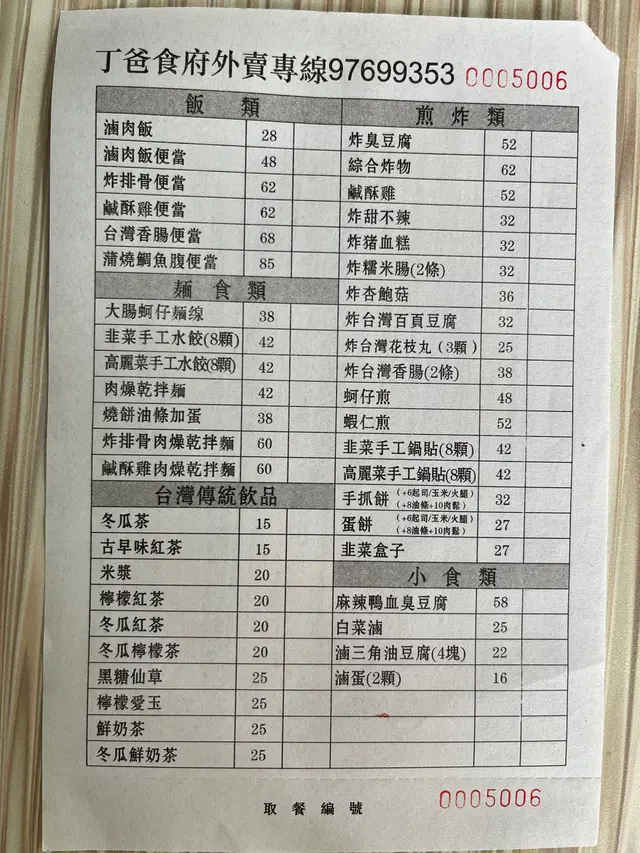 丁爸食府外賣專線97699353 0005006
飯 類
滷肉飯 28
滷肉飯便當 48
炸排骨便當 62
鹹酥雞便當 62
台灣香腸便當 68
蒲燒鯛魚腹便當 85
麵 食 類
大腸蚵仔麺線 38
韭菜手工水餃(8顆) 42
高麗菜手工水餃(8顆) 42
肉燥乾拌麵 42
燒餅油條加蛋 38
炸排骨肉燥乾拌麵 60
鹹酥雞肉燥乾拌麵 60
台灣傳統飲品
冬瓜茶 15
古早味紅茶 15
米漿 20
檸檬紅茶 20
冬瓜紅茶 20
冬瓜檸檬茶 20
黑糖仙草 25
檸檬愛玉 25
鮮奶茶 25
冬瓜鮮奶茶 25
煎 炸 類
炸臭豆腐 52
綜合炸物 62
鹹酥雞 52
炸甜不辣 32
炸猪血糕 32
炸糯米腸(2條) 32
炸杏鮑菇 36
炸台灣百頁豆腐 32
炸台灣花枝丸(3顆) 25
炸台灣香腸(2條) 38
蚵仔煎 48
蝦仁煎 52
韭菜手工鍋貼(8顆) 42
高麗菜手工鍋貼(8顆) 42
手抓餅 (+6起司/玉米/火腿) 32
(+8油條+10肉鬆)
蛋餅 (+6起司/玉米/火腿) 27
(+8油條+10肉鬆)
韭菜盒子 27
小 食 類
麻辣鴨血臭豆腐 58
白菜滷 25
滷三角油豆腐(4塊) 22
滷蛋(2顆) 16
取 餐 編 號 0005006